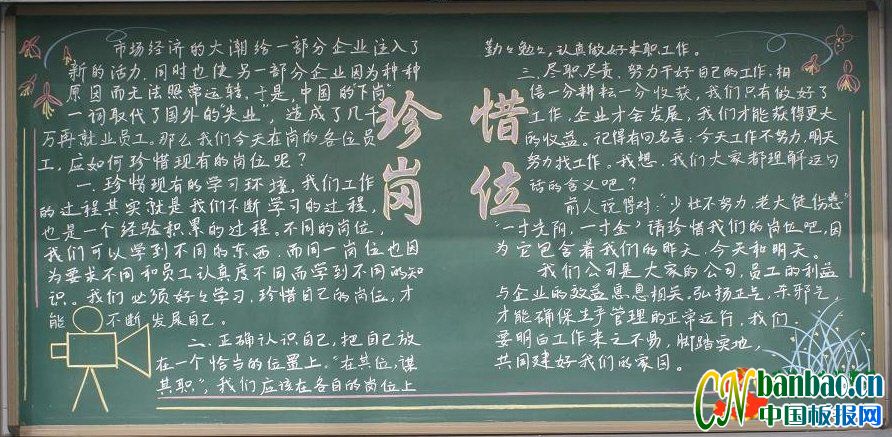 市场经济的大潮给一部分企业注入了
新的活力.同时也使另一部分企业因为种种
原因而无法照常运转.于是,中国的"下岗"
一词取代了国外的"失业",造成了几千
万再就业员工。那么我们今天在岗的各位员
工,应如何珍惜现有的岗位呢?
一.珍惜现有的学习环境,我们工作
的过程其实就是我们不断学习的过程,
也是一个经验积累的过程。不同的岗位,
我们可以学到不同的东西.而同一岗位也因
为要求不同和员工认真度不同而学到不同的知
识。我们必须好々学习,珍惜自己的岗位,才
能 不断发展自己。
二.正确认识自己,把自己放
在一个恰当的位置上."在其位,谋
其职",我们应该在各自的岗位上
珍惜
岗位
勤々勉々,认真做好本职工作。
三.尽职尽责.努力干好自己的工作,相
信一分耕耘一分收获,我们只有做好了
工作,企业才会发展,我们才能获得更大
的收益。记得有句名言:今天工作不努力,明天
努力找工作。我想,我们大家都理解这句
话的含义吧?
前人说得对:"少壮不努力,老大徒伤悲"
"一寸光阴,一寸金"请珍惜我们的岗位吧,因
为它包含着我们的昨天、今天和明天。
我们公司是大家的公司,员工的利益
与企业的效益息息相关,弘扬正气,去邪气,
才能确保生产管理的正常运行,我们
要明白工作来之不易,脚踏实地,
共同建好我们的家园。
CN banbao.cn
中国板报网